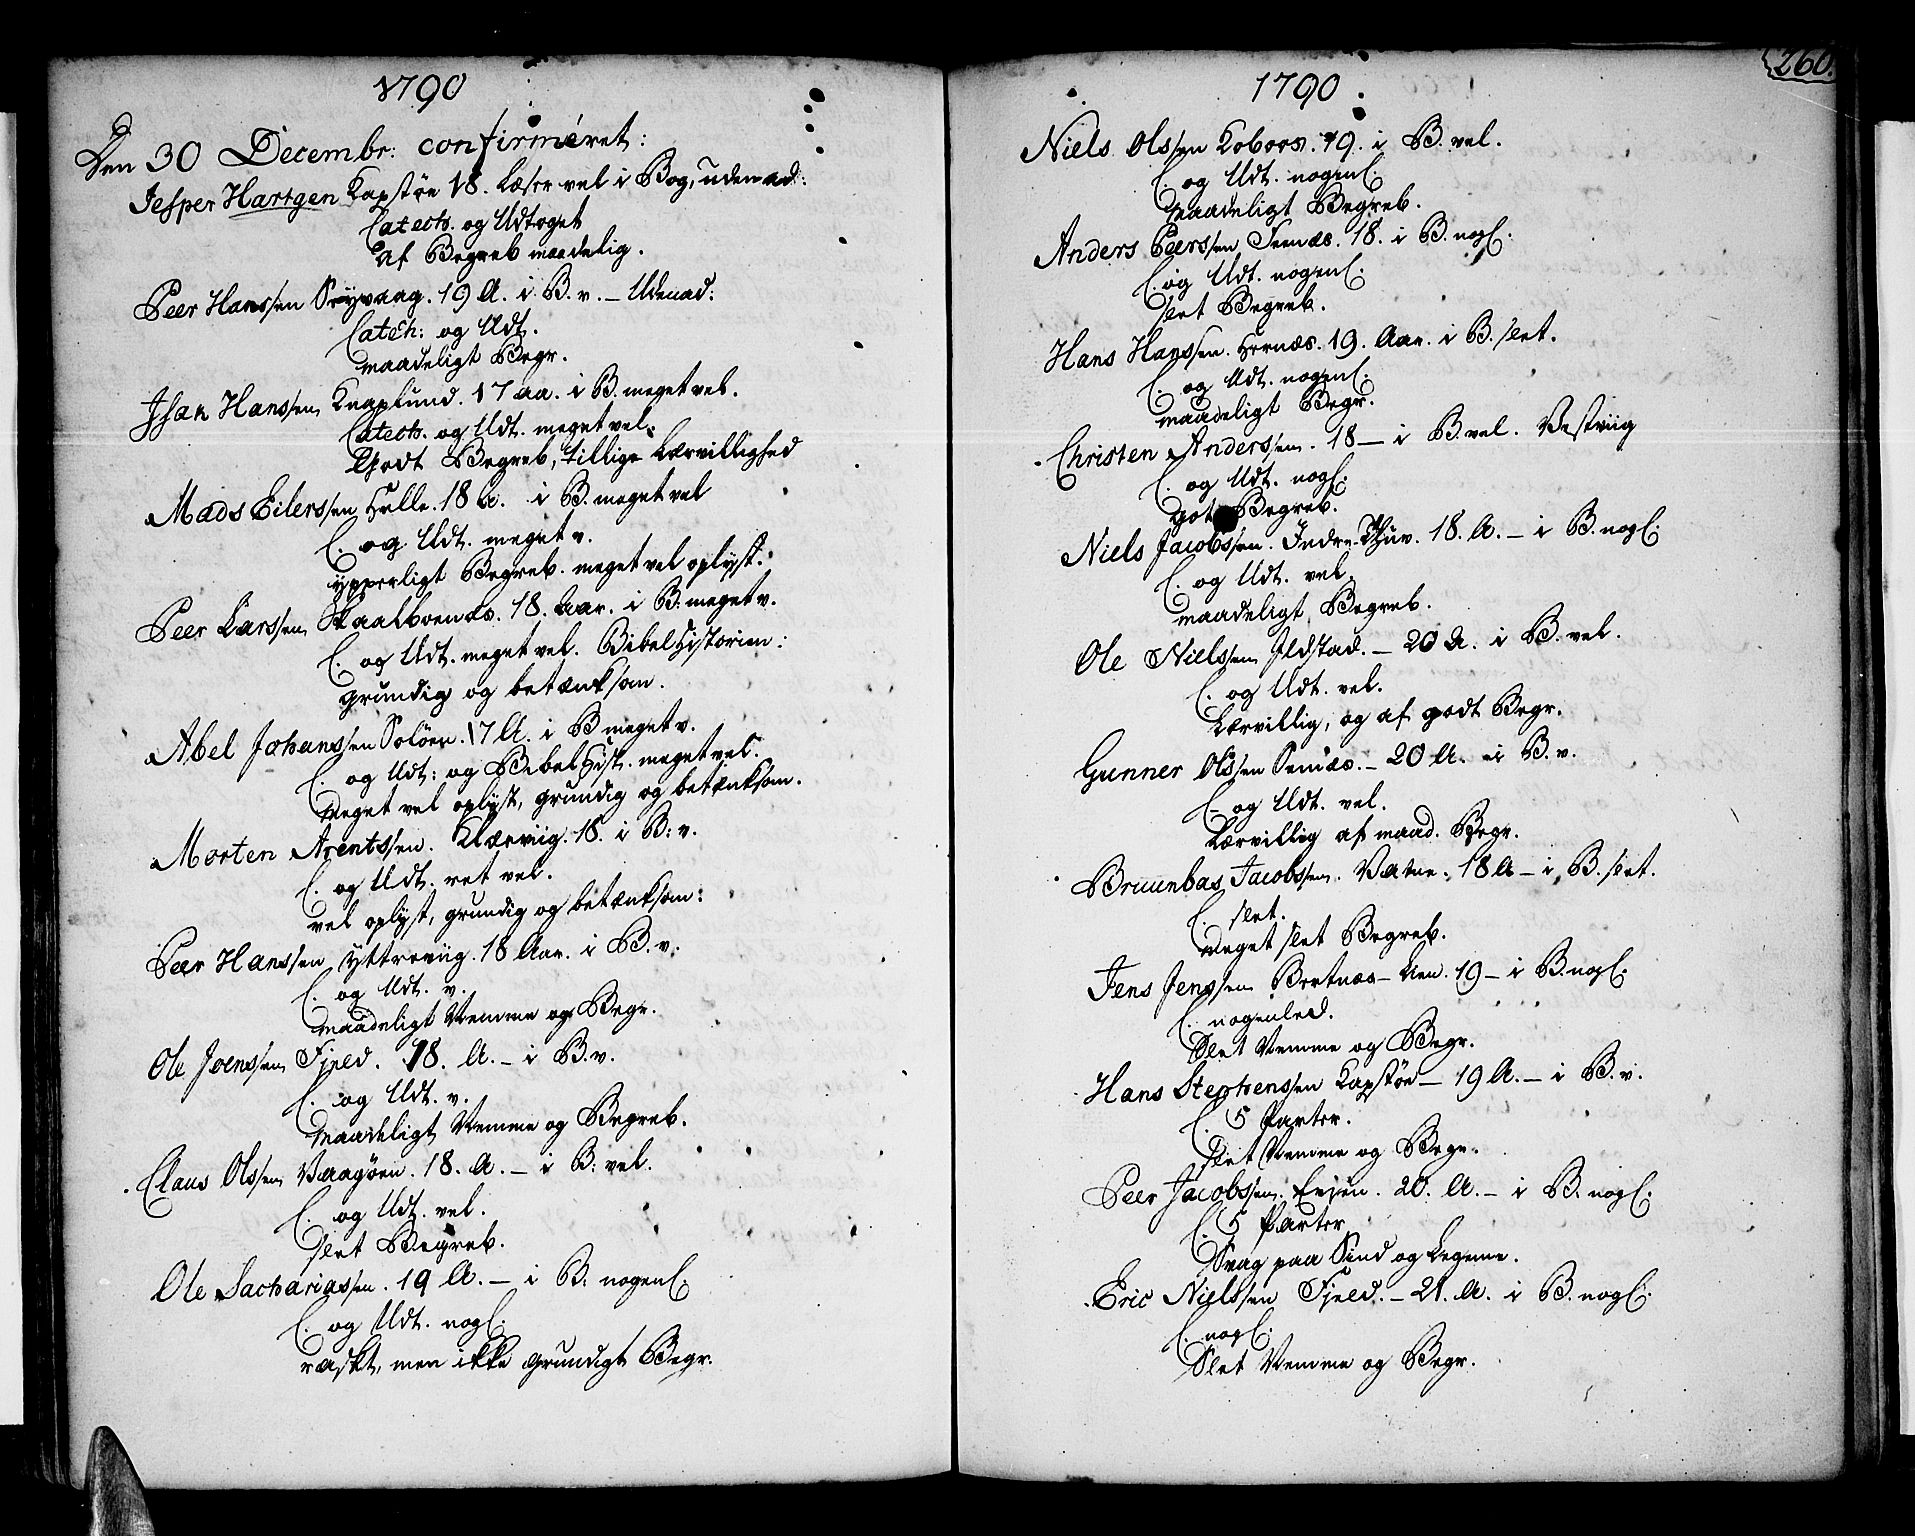 1790
Den 30 Decembr: confirméret:
Jesper Hartgen Kapstøe 18. Læser vel i Bog, udenad:
Catech. og Udtoget
af Begreb maadelig.
Peer Hanssen 19 A. i B. v. – Udenad:
Catech: og Udt.
maadeligt Begr.
Isak Hanssen Knaplund. 17 aa. i B. meget vel.
Catech. og Udt. meget vel.
Godt Begreb, tillige Lærvillighed
Mads Eilerssen Hælle. 18 A. i B. meget vel
C. og Udt. meget v.
ypperligt Begreb. meget vel oplyst:
Peer Larssen Skaalboenæs. 18. Aar. i B. meget v.
C. og Udt. meget vel. BibelHistorien:
grundig og betænksom.
Abel Johanssen Soløen. 17 A. i B meget v.
C. og Udt: og BibelHist. meget vel.
meget vel oplyst, grundig og betænksom.
Morten Arentssen. Klærviig. 18. i B: v.
C. og Udt. ret vel.
vel oplyst, grundig og betænksom:
Peer Hanssen Yttreviig. 18 Aar. i B. v.
C. og Udt. v.
maadeligt Nemme og Begr.
Ole Joenssen Fjeld. 18. A. – i B. v.
C. og Udt. v.
maadeligt Nemme og Begreb.
Claus Olssen Vaagøen. 18. A. – i B: vel.
C. og Udt. vel.
slet Begreb.
Ole Sachariassen. 19 A. – i B. nogenl.
C. og Udt. nogl.
raskt, men ikke grundigt Begr.
260.
1790.
Niels Olssen Kobbos. 19. i B. vel.
C. og Udt. nogenl.
maadeligt Begreb.
Anders Peerssen 18. i B. nogl.
C. og Udt. nogenl.
slet Begreb.
Hans Hanssen. Hernæs. 19. Aar. i B. slet.
C. og Udt. nogenl.
maadeligt Begr.
Christen Anderssen. 18 – i B. vel. Vestviig
C. og Udt. nogl.
got Begreb.
Niels Jacobssen. Indre-Thuv. 18. A. – i B. nogl.
C. og Udt. vel.
maadeligt Begreb.
Ole Nielssen Ildstad. – 20 A. i B. vel.
C. og Udt. vel.
Lærvillig, og af godt Begr.
Gunner Olssen Semæs. – 20 A. – i B. v.
C. og Udt. vel.
Lærvillig af maad. Begr.
Bruunbas Jacobssen. Vatne. 18 A – i B. slet.
C. slet.
meget slet Begreb.
Jens Jenssen Bertnæs – Aen. 19 – i B. nogl.
C. nogenled.
Slet Nemme og Begr.
Hans Stephenssen Kapstøe – 19 A. – i B. v.
C. 5 Parter.
slet Nemme og Begr.
Peer Jacobssen. Evjen. 20. A. – i B. nogl.
C. 5 Parter
Svag paa Sind og Legeme.
Eric Nielssen Fjeld. – 21. A. i B. nogl.
C. nogl.
Slet Nemme og Begr.